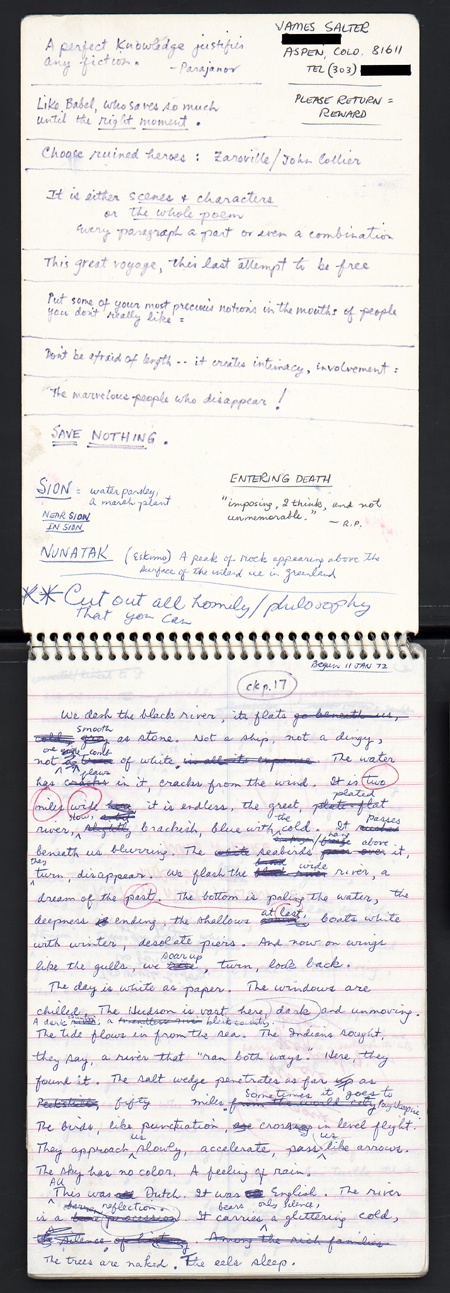 JAMES SALTER
ASPEN, COLO. 81611
TEL (303)
PLEASE RETURN =
REWARD
A perfect Knowledge justifies
any fiction. - Parajanov
Like Babel, who saves so much
until the right moment.
Choose ruined heroes : Zaroville/John Collier
It is either scenes & characters
or the whole poem
Every paragraph a part or even a combination
This great voyage, this last attempt to be free
Put some of your most precious notions in the mouths of people
you don't really like =
Don't be afraid of length -- it creates intimacy, involvement =
The marvelous people who disappear!
SAVE NOTHING.
SION = water parsley,
a marsh plant
NEAR SION
IN SION
ENTERING DEATH
"imposing, I think, and not
unmemorable." - R.P.
NUNATAK (Eskimo) A peak of rock appearing above the
surface of the inland ice in greenland
** Cut out all homily/philosophy
that you can
Begun 11 JAN 72
ck p. 17
We dash the black river, its flats go beneath us,
smooth
as stone. Not a ship, not a dingy,
one
not of white. The water
flaws
has cracks in it, cracks from the wind. It is two
miles wide it is endless, the great, flat
plated
river, slightly brackish, blue with the cold. It passes
beneath us blurring. The seabirds above it,
they wide
turn, disappear. We flash the river, a
dream of the past. The bottom is paling the water, the
deepness is ending, the shallows at last, boats white
with winter, desolate piers. And now on wings
like the gulls, we soar up, turn, look back.
The day is white as paper. The windows are
chilled. The Hudson is vast here, dark and unmoving.
The tide flows in from the sea. The Indians sought,
they say, a river that "ran both ways". Here, they
found it. The salt wedge penetrates as far up as
Sometimes it goes to
fifty miles from the world city Poughkeepsie
The birds, like punctuation, cross in level flight.
They approach us slowly, accelerate, pass us like arrows.
The sky has no color. A feeling of rain.
All
This was Dutch. It was English. The river
reflection. bears only silence,
is a It carries a glittering cold,
silence of Among the rich families
The trees are naked. The eels sleep.